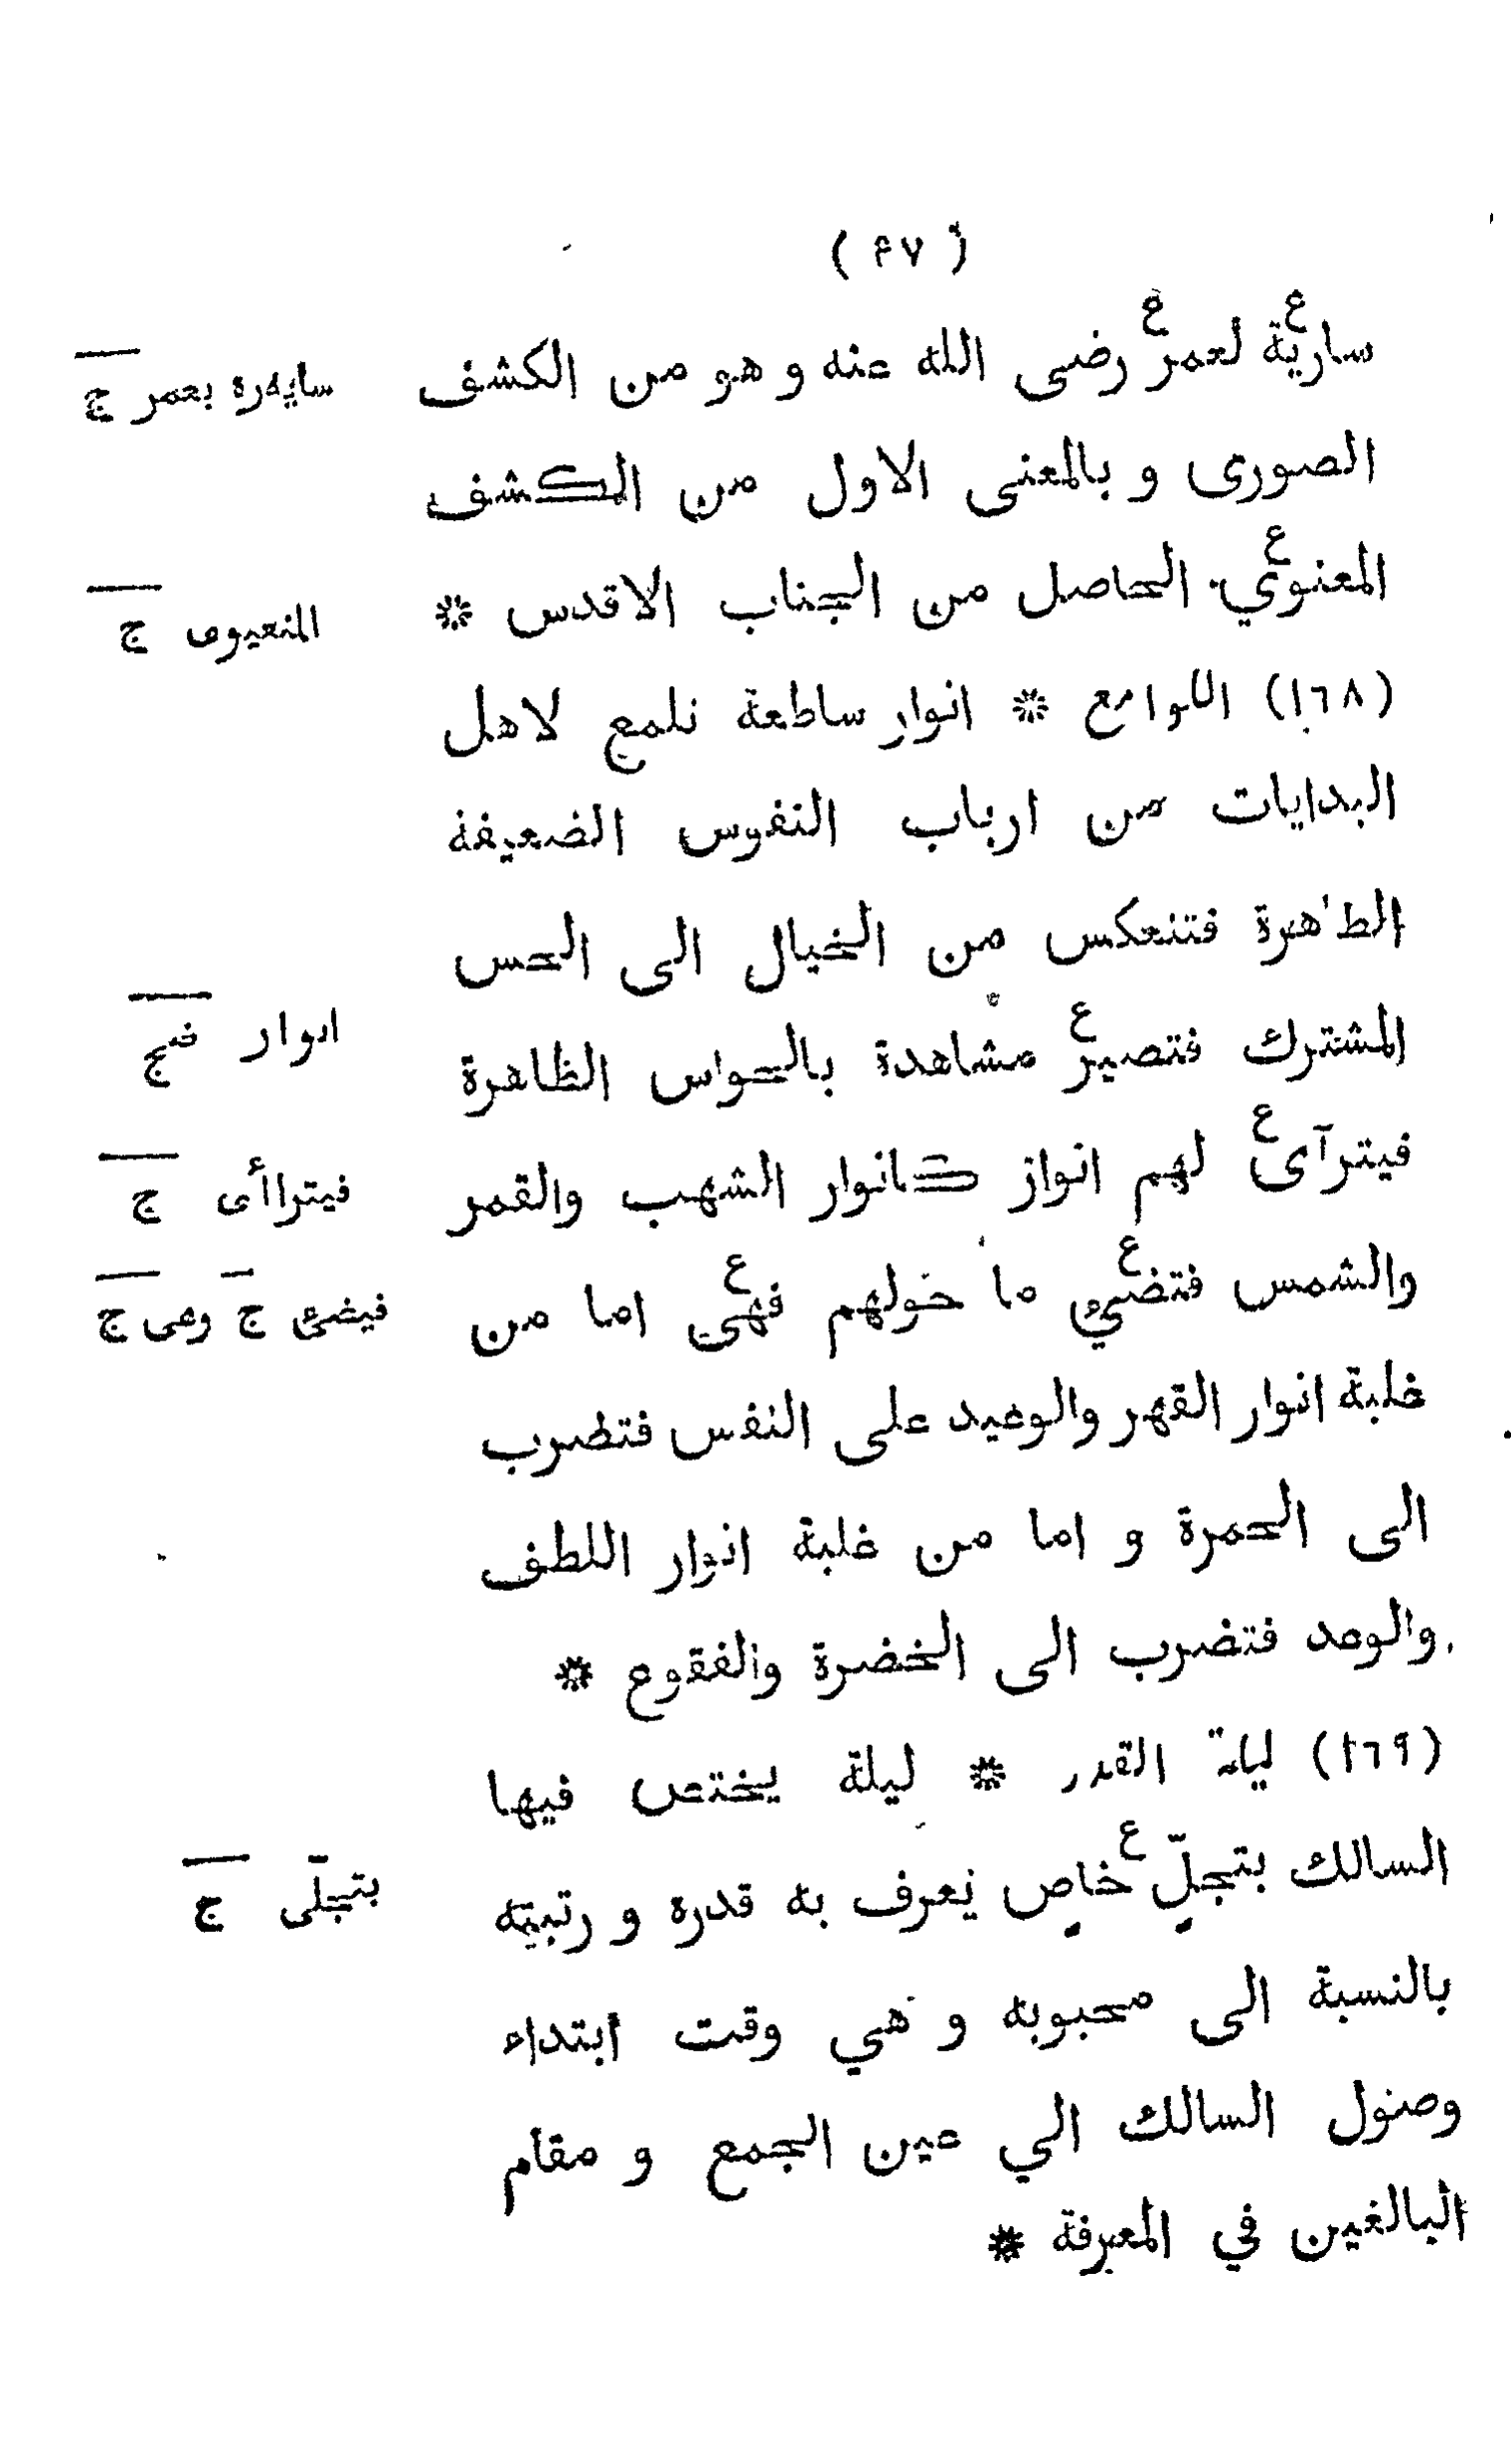 ( ۴۷ )
ساريةع لعمرع رضى الله عنه و هو من الكشف
سايهره بعمر ج
الصورى و بالمعنى الاول من الكشف
المعنويع الحاصل من الجناب الاقدس *
المنعيوى ج
(١٦٨) اللوامع * انوار ساطعة تلمع لاهل
البدايات من ارباب النفوس الضعيفة
الطاهرة فتنعكس من الخيال الى الحس
المشترك فتصيرع مشاهدة بالحواس الظاهرة
انوار ضج
فيترآىع لهم انوار كانوار الشهب والقمر
فيتراأى ج
والشمس فتضيءع ما حولهم فهيع اما من
فيضئ ج وهى ج
غلبة انوار القهر والوعيد على النفس فتضرب
الى الحمرة و اما من غلبة انوار اللطف
والوعد فتضرب الى الخضرة والفقوع *
(١٦٩) ليلة القدر * ليلة يختص فيها
السالك بتجلٍّع خاصٍ يعرف به قدره و رتبته
بتجلّى ج
بالنسبة الى محبوبه و هي وقت ابتداء
وصول السالك الي عين الجمع و مقام
البالغين في المعرفة *